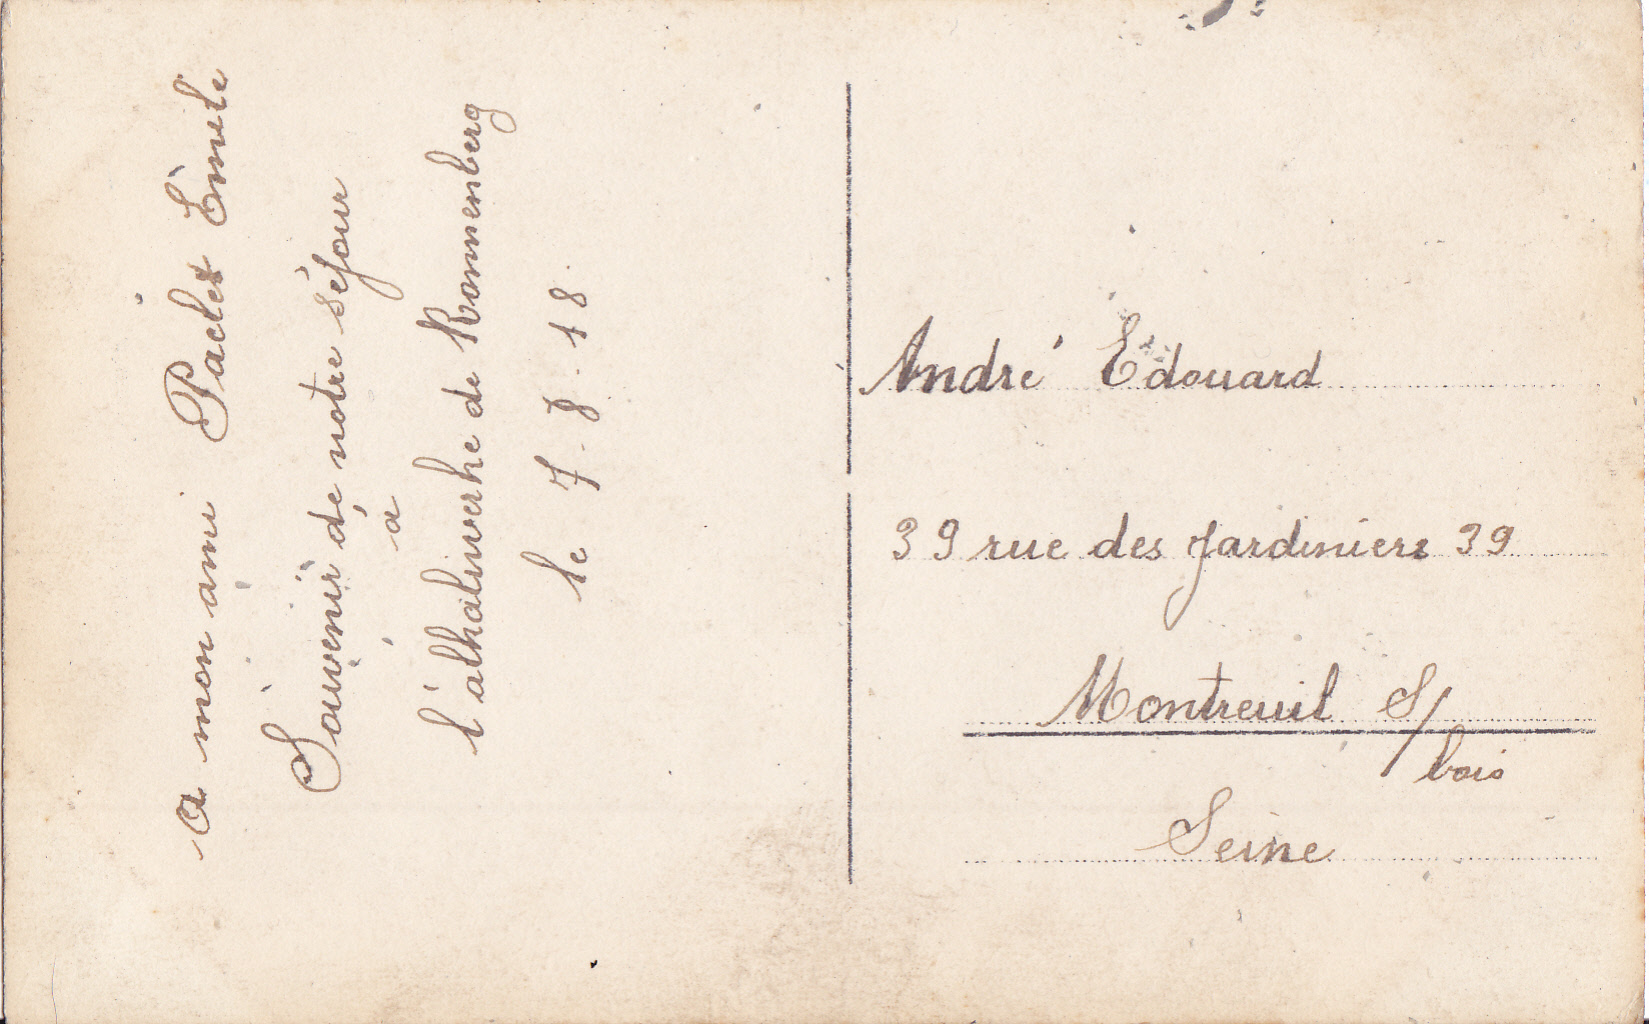 A mon ami Paclet Émile
Souvenir de notre séjour
à
l'alkaliwerke de Ronnenberg
le 7-8-18
André Edouard
39 rue des Jardiniers 39
Montreuil S/
bois
Seine